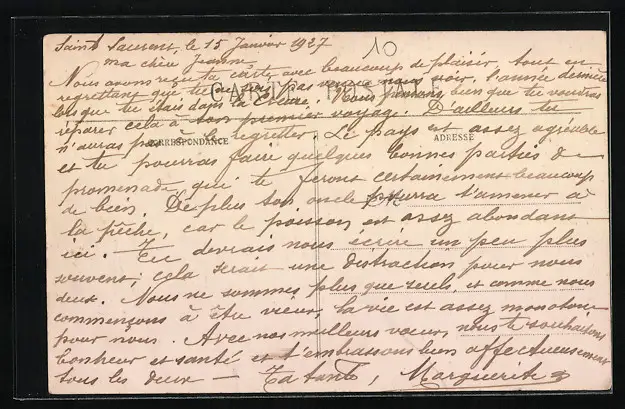 Saint Laurent, le 15 Janvier 1927
10
ma chère Jeanne
Nous avons reçu ta carte avec beaucoup de plaisir, tout en
regrettant que tu pas venue nous voir, l'année dernière
CARTE POSTALE
lorsque tu étais dans la Creuse. Nous pensons bien que tu voudras
réparer cela à ton premier voyage. D'ailleurs tu
n'auras pas à le regretter. Le pays est assez agréable
CORRESPONDANCE
ADRESSE
et tu pourras faire quelques bonnes parties de
promenade, qui te feront certainement beaucoup
de bien. De plus ton oncle pourra t'amener à
la pêche, car le poisson est assez abondant
ici. Tu devrais nous écrire un peu plus
souvent; cela serait une distraction pour nous
deux. Nous ne sommes plus que seuls, et comme nous
commençons à être vieux, la vie est assez monotone
pour nous. Avec nos meilleurs vœux, nous te souhaitons
bonheur et santé et t'embrassons bien affectueusement
tous les deux — Ta tante, Marguerite